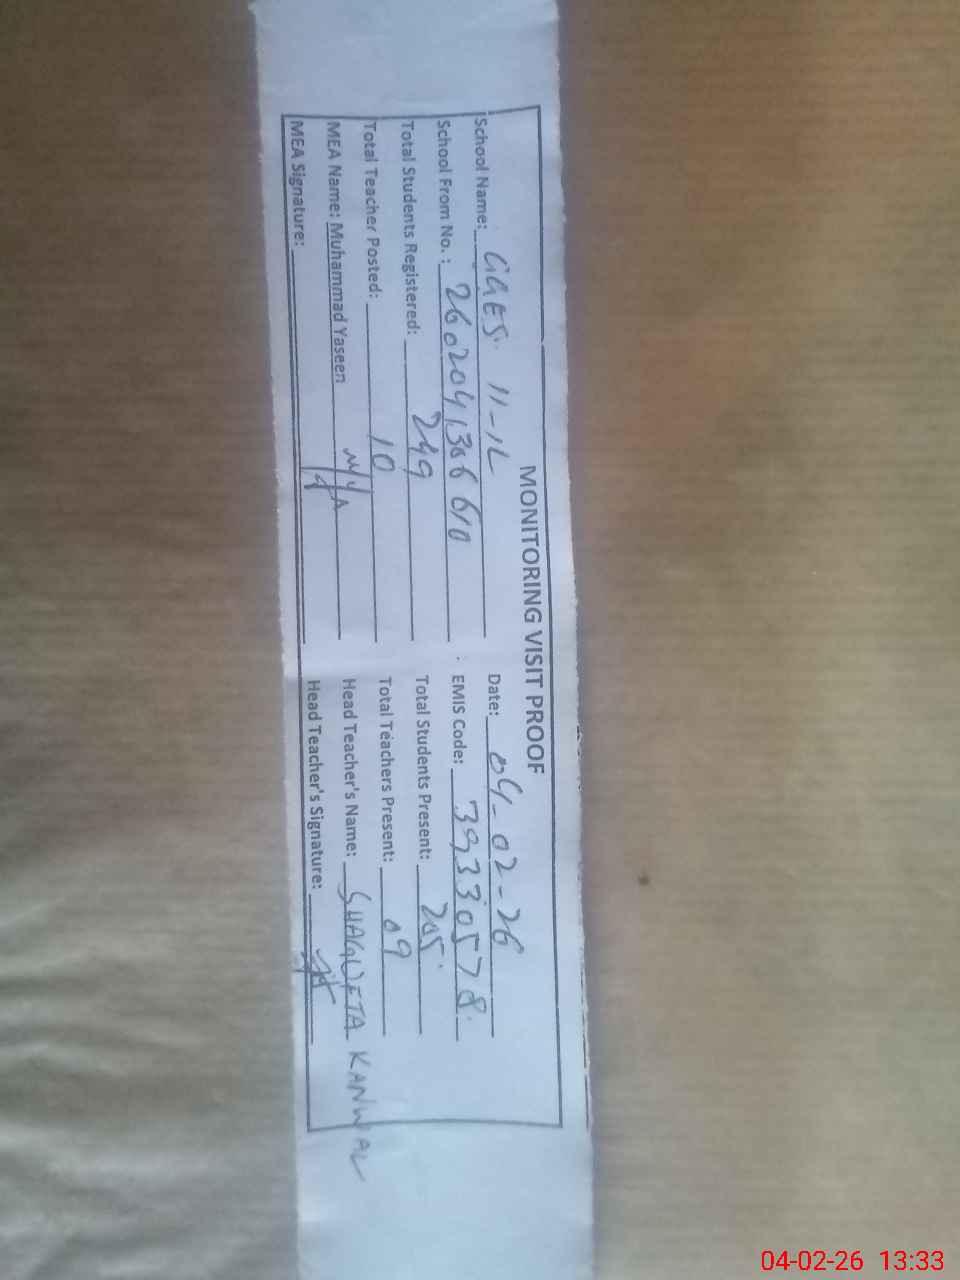 MONITORING VISIT PROOF
School Name: GGES 11-1L Date: 04-02-26
School From No. : 2602041366610 EMIS Code: 39330578
Total Students Registered: 249 Total Students Present: 205
Total Teacher Posted: 10 Total Teachers Present: 09
MEA Name: Muhammad Yaseen Head Teacher's Name: SHAGUFTA KANWAL
MEA Signature: Head Teacher's Signature:
04-02-26 13:33